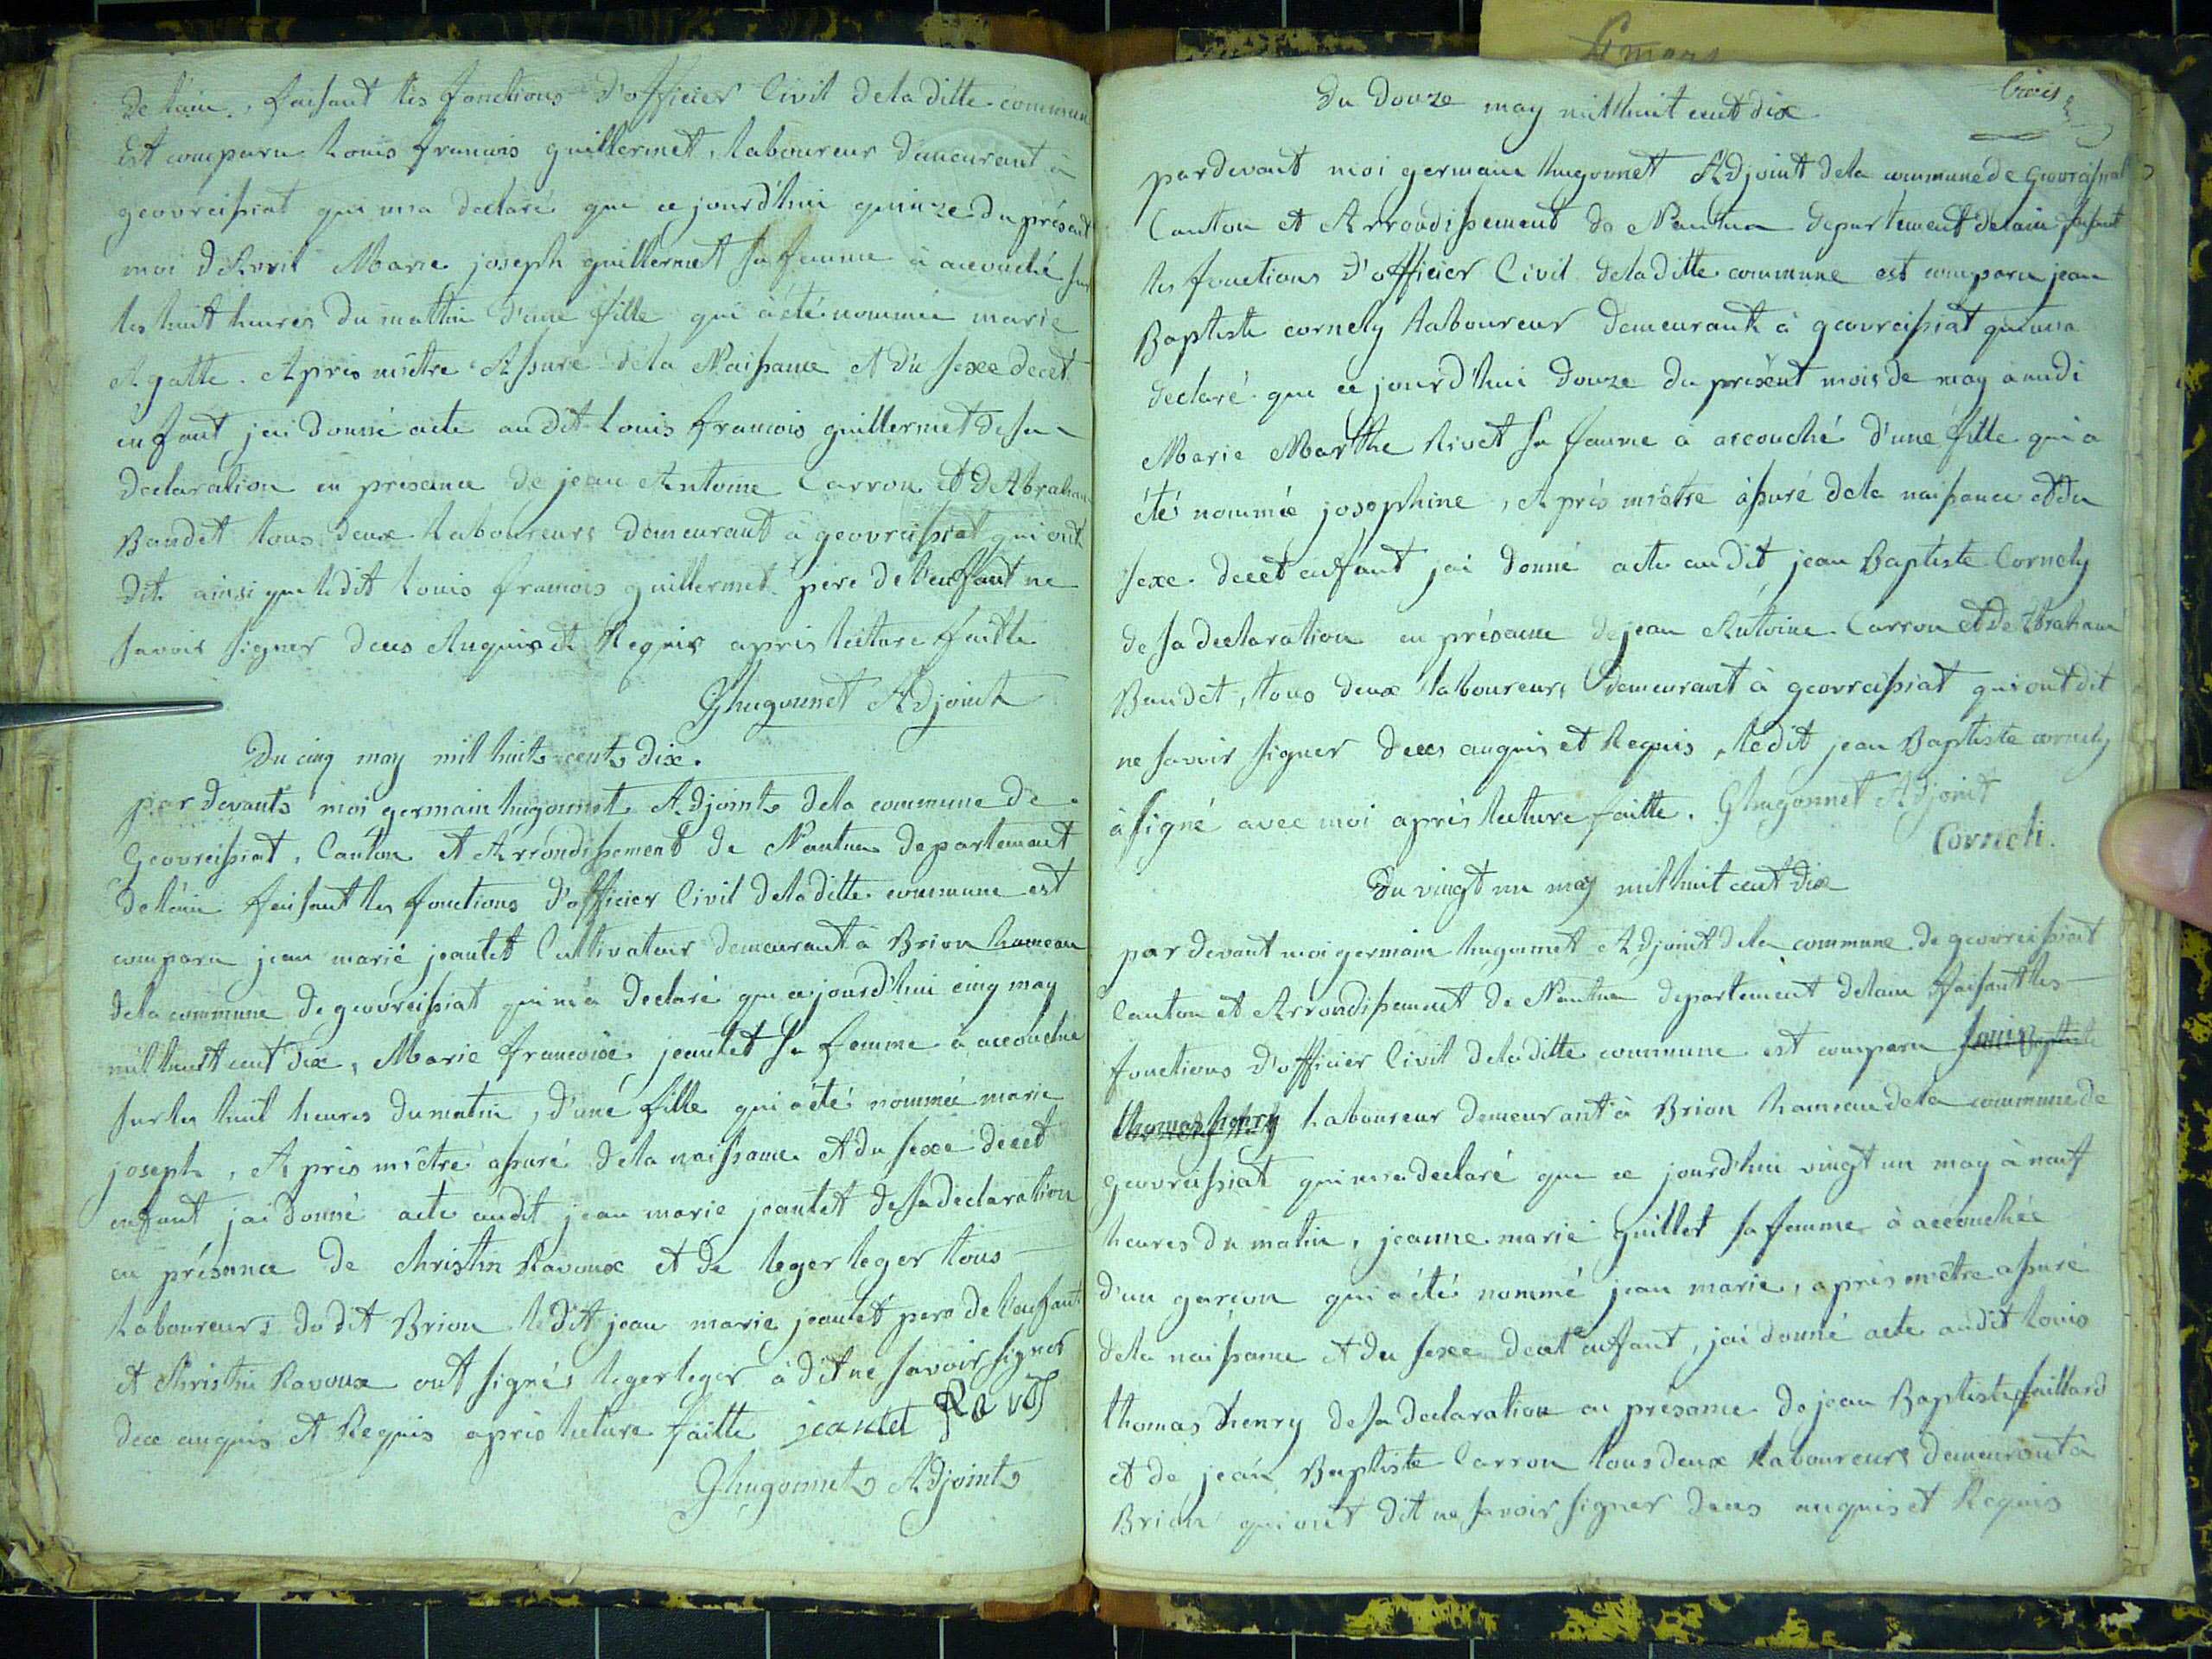 de lain, faisant les fonctions d'officier Civil de la ditte commun
Est comparu Louis francois guillermet, laboureur demeurant à
geovreissiat qui ma declaré que ce jourd'hui quinze du présent
moi d'Avril Marie joseph guillermet sa femme à accouché sur
les huit heures du mattin d'une fille qui à été nommée marie
Agatte. Aprés m'être Assuré de la Naissance et du sexe de cet
enfant jai donné acte audit Louis francois guillermet de sa
declaration en présence de jean Antoine Carron et de Abraham
Baudet tous deux Laboureurs demeurant à geovreissiat qui ont
dit ainsi que ledit Louis francois guillermet pere de l'enfant ne
savoir signer deces Anquis et Requis aprés lecture faitte
Ghugonnet Adjoint
Du cinq may mil huit cent dix.
par devants moi germain hugonnet Adjoint de la commune de
Geovreissiat, Canton et Arrondissement de Nantua departement
de lain faisant les fonctions d'officier Civil de la ditte commune est
comparu jean marie jeantet Cultivateur demeurant à Brion hameau
de la commune de geovreissiat qui m'a declaré que ce jourd'hui cinq may
mil huit cent dix, Marie francoise jeantet sa femme à accouché
sur les huit heures du matin, d'une fille qui à été nommée marie
joseph, Aprés m'être assuré de la naissance et du sexe de cet
enfant jai donné acte audit jean marie jeantet de sa declaration
en présence de christin Ravoux et de leger leger tous
Laboureurs du dit Brion ledit jean marie jeantet pere de l'enfant
et christin Ravoux ont signés leger leger à dit ne savoir signer
dece anquis et Requis aprés lecture faitte jeantet
Ghugonnet Adjoint
trois
Du Douze may mil huit cent dix
par devant moi germain hugonnet Adjoint de la commune de Geovreissiat
Canton et Arrondissement de Nantua departement de lain faisant
les fonctions d'officier Civil de la ditte commune est comparu jean
Baptiste cornely Laboureur demeurant à geovreissiat qui ma
declaré que ce jourd'hui douze du présent mois de may à midi
Marie Marthe Rivet sa femme à accouché d'une fille qui a
été nommée josephine, Aprés m'être assuré de la naissance et du
sexe de cet enfant jai donné acte audit jean Baptiste Cornely
de sa declaration en présence de jean Antoine Carron et de Abraham
Baudet, tous deux laboureurs demeurant à geovreissiat qui ont dit
ne savoir signer deces anquis et Requis, ledit jean Baptiste cornely
à signé avec moi aprés lecture faitte. Ghugonnet Adjoint
Corneli.
Du vingt un may mil huit cent dix
par devant moi germain hugonnet Adjoint de la commune de geovreissiat
Canton et Arrondissement de Nantua departement de lain faisant les
fonctions d'officier Civil de la ditte commune est comparu Louis
thomas henry Laboureur demeurant à Brion hameau de la commune de
geovreissiat qui m'a declaré que ce jourd'hui vingt un may à neuf
heures du matin, jeanne marie guillet sa femme à accouchée
d'un garçon qui à été nommé jean marie, aprés m'être assuré
de la naissance et du sexe de cet enfant, jai donné acte audit Louis
thomas henry de sa declaration en présence de jean Baptiste faillard
et de jean Baptiste Carron tous deux Laboureurs demeurant à
Brion qui ont dit ne savoir signer deces anquis et Requis